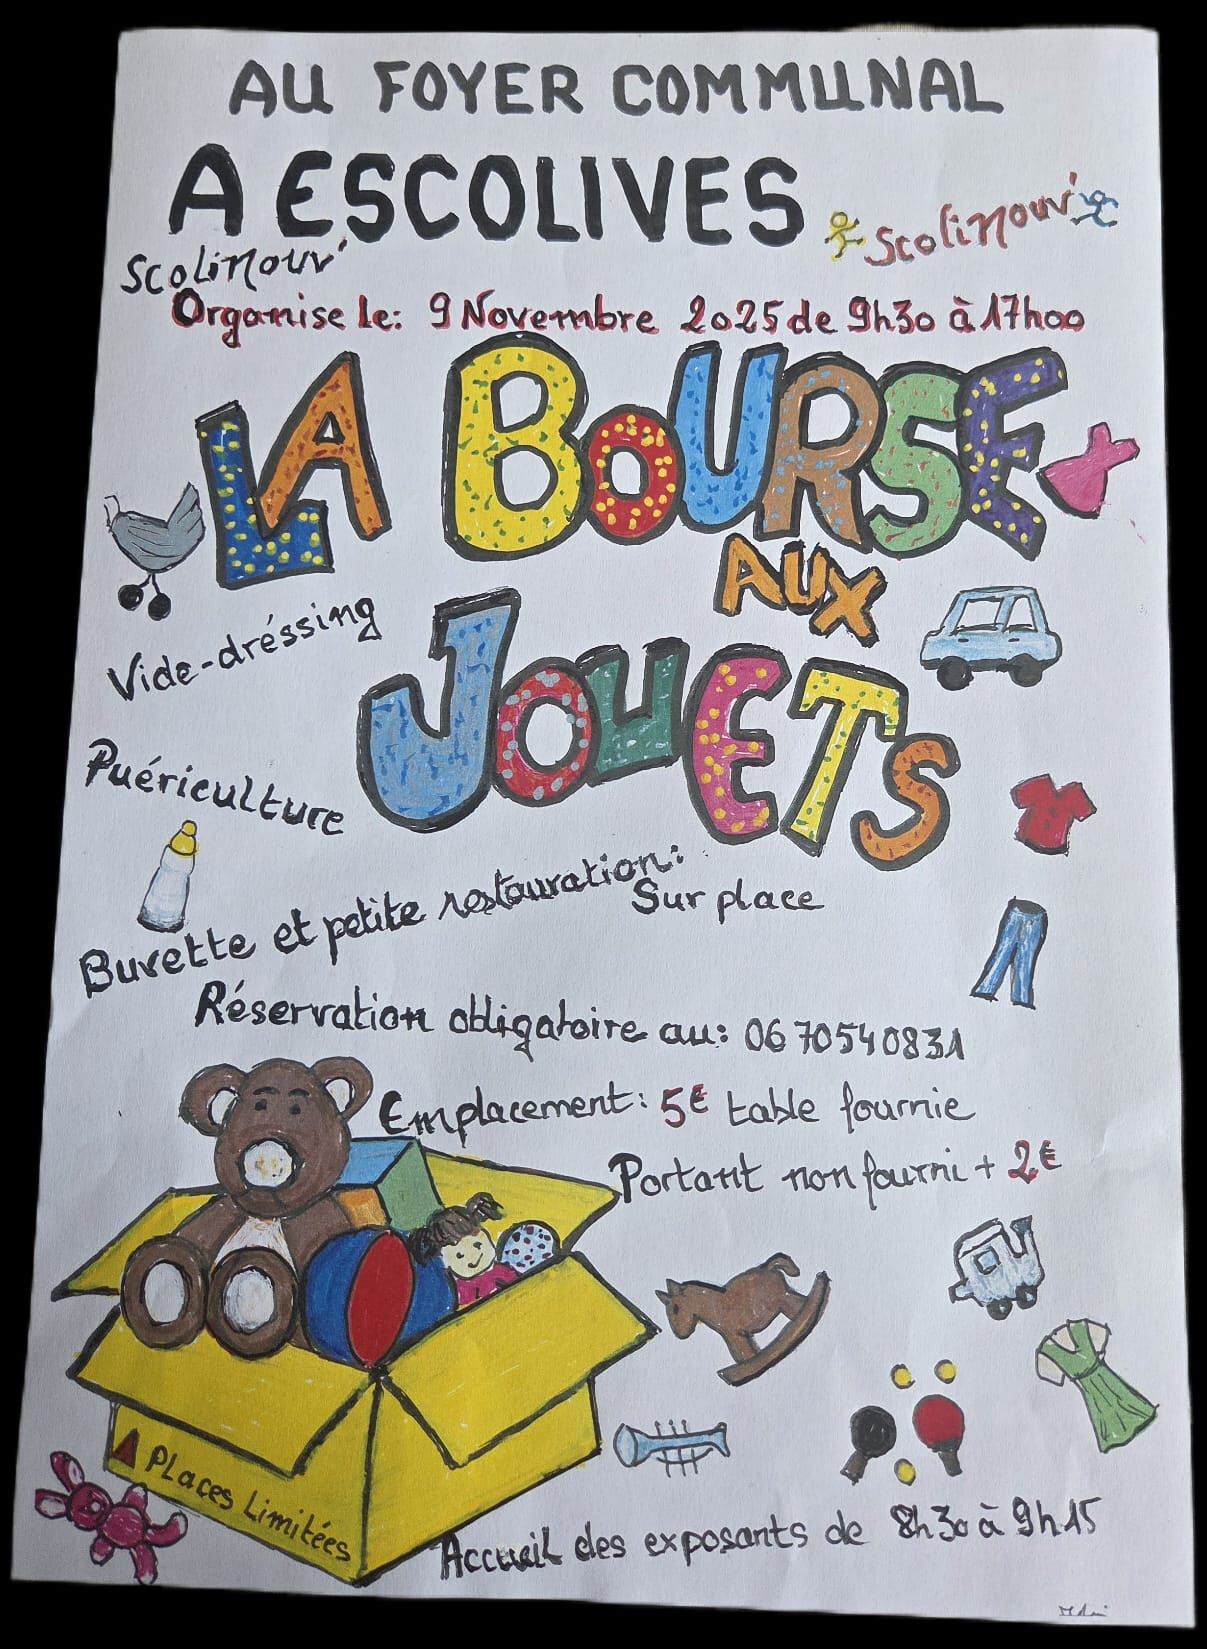 AU FOYER COMMUNAL
A ESCOLIVES
Scolinouv'
Scolinouv'
Organise le: 9 Novembre 2025 de 9h30 à 17h00
LA BOURSE
AUX
JOUETS
Vide-dréssing
Puériculture
Buvette et petite restauration:
Sur place
Réservation obligatoire au: 06 70540831
Emplacement: 5€ table fournie
Portant non fourni + 2€
Places Limitées
Accueil des exposants de 8h30 à 9h15